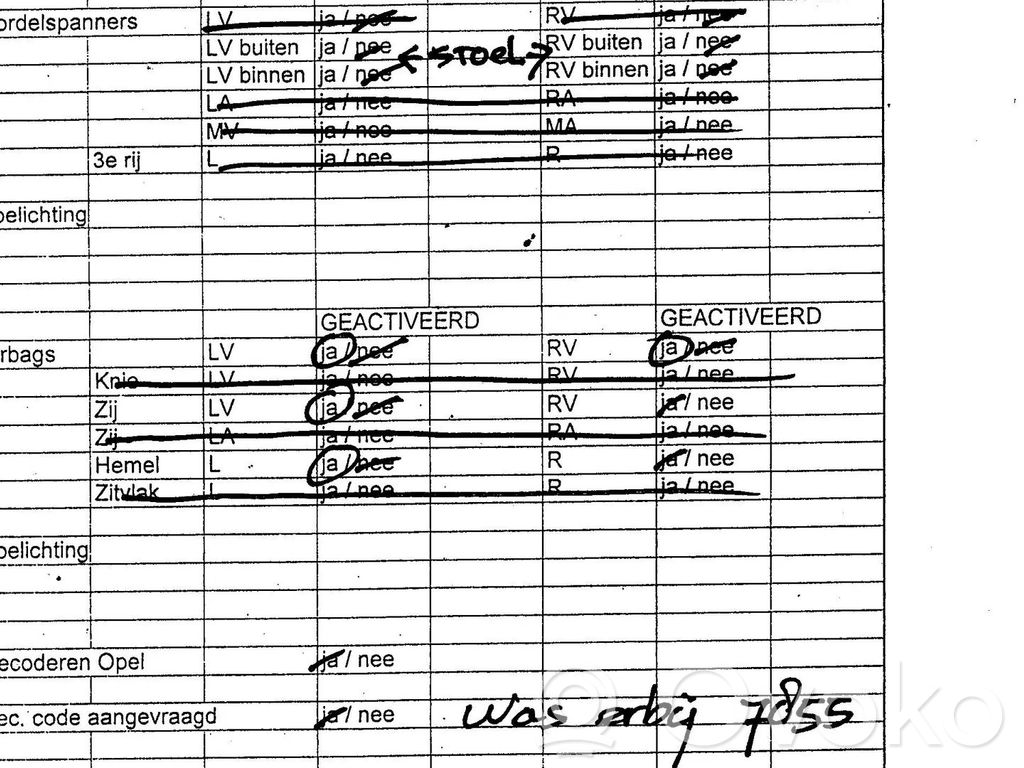 ordelspanners LV ja / nee RV ja / nee
LV buiten ja / nee STOEL RV buiten ja / nee
LV binnen ja / nee RV binnen ja / nee
LA ja / nee RA ja / nee
MV ja / nee MA ja / nee
3e rij L ja / nee R ja / nee
oelichting
GEACTIVEERD GEACTIVEERD
rbags LV ja / nee RV ja / nee
Knie LV ja / nee RV ja / nee
Zij LV ja / nee RV ja / nee
Zij LA ja / nee RA ja / nee
Hemel L ja / nee R ja / nee
Zitvlak L ja / nee R ja / nee
oelichting
ecoderen Opel ja / nee
ec. code aangevraagd ja / nee was erbij 7855
Ovoko